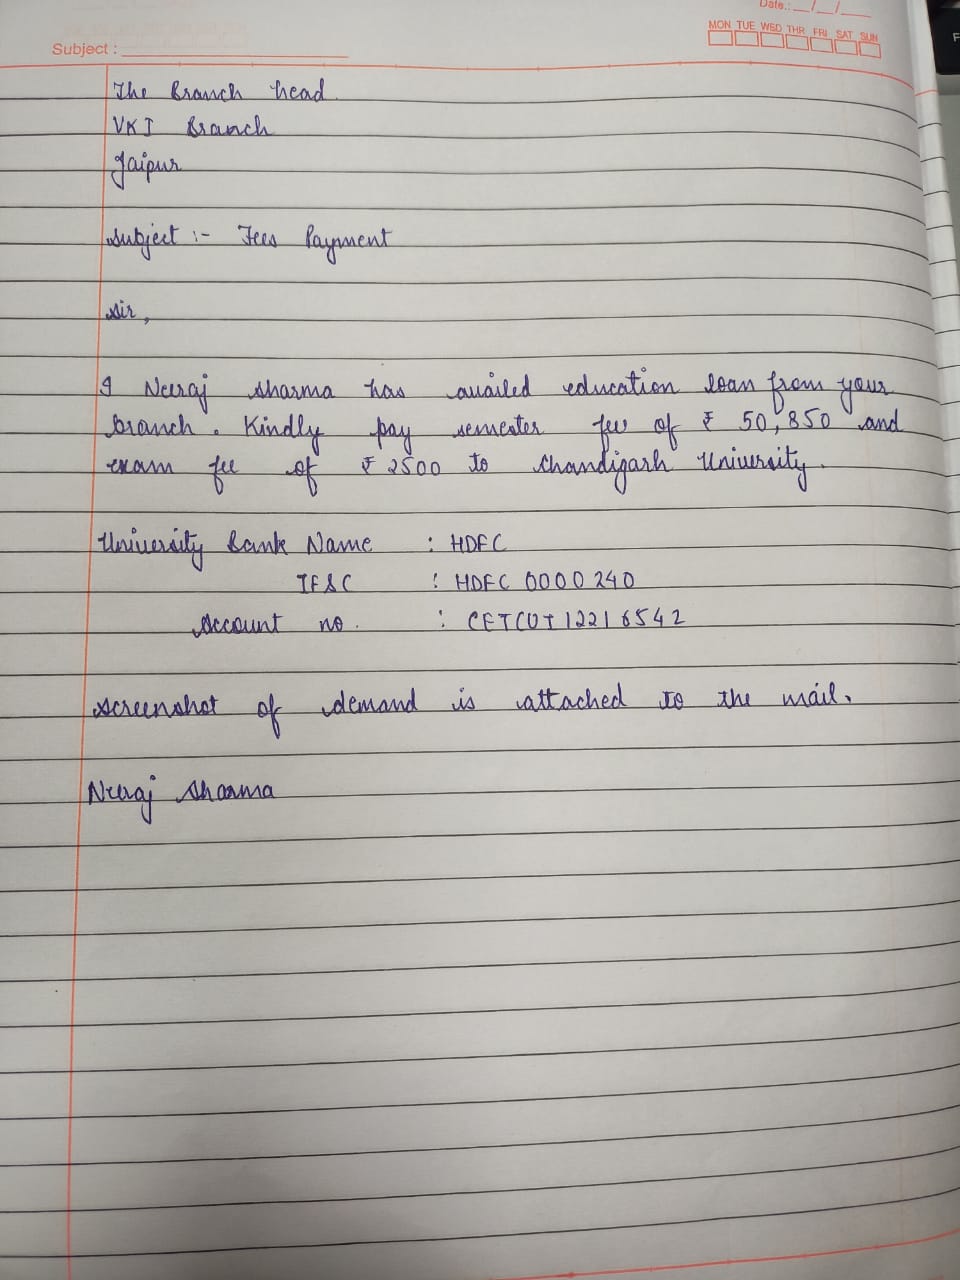 Date.: __/__/__
MON TUE WED THR FRI SAT SUN
Subject :
The Branch head
VKI Branch
Jaipur
Subject :- Fees Payment
Sir,
I Neeraj Sharma has availed education loan from your
branch. Kindly pay semester fee of ₹ 50,850 and
exam fee of ₹ 2500 to Chandigarh University.
University Bank Name : HDFC
IFSC : HDFC 0000240
Account no. : CETCUI12216542
Screenshot of demand is attached to the mail.
Neeraj Sharma